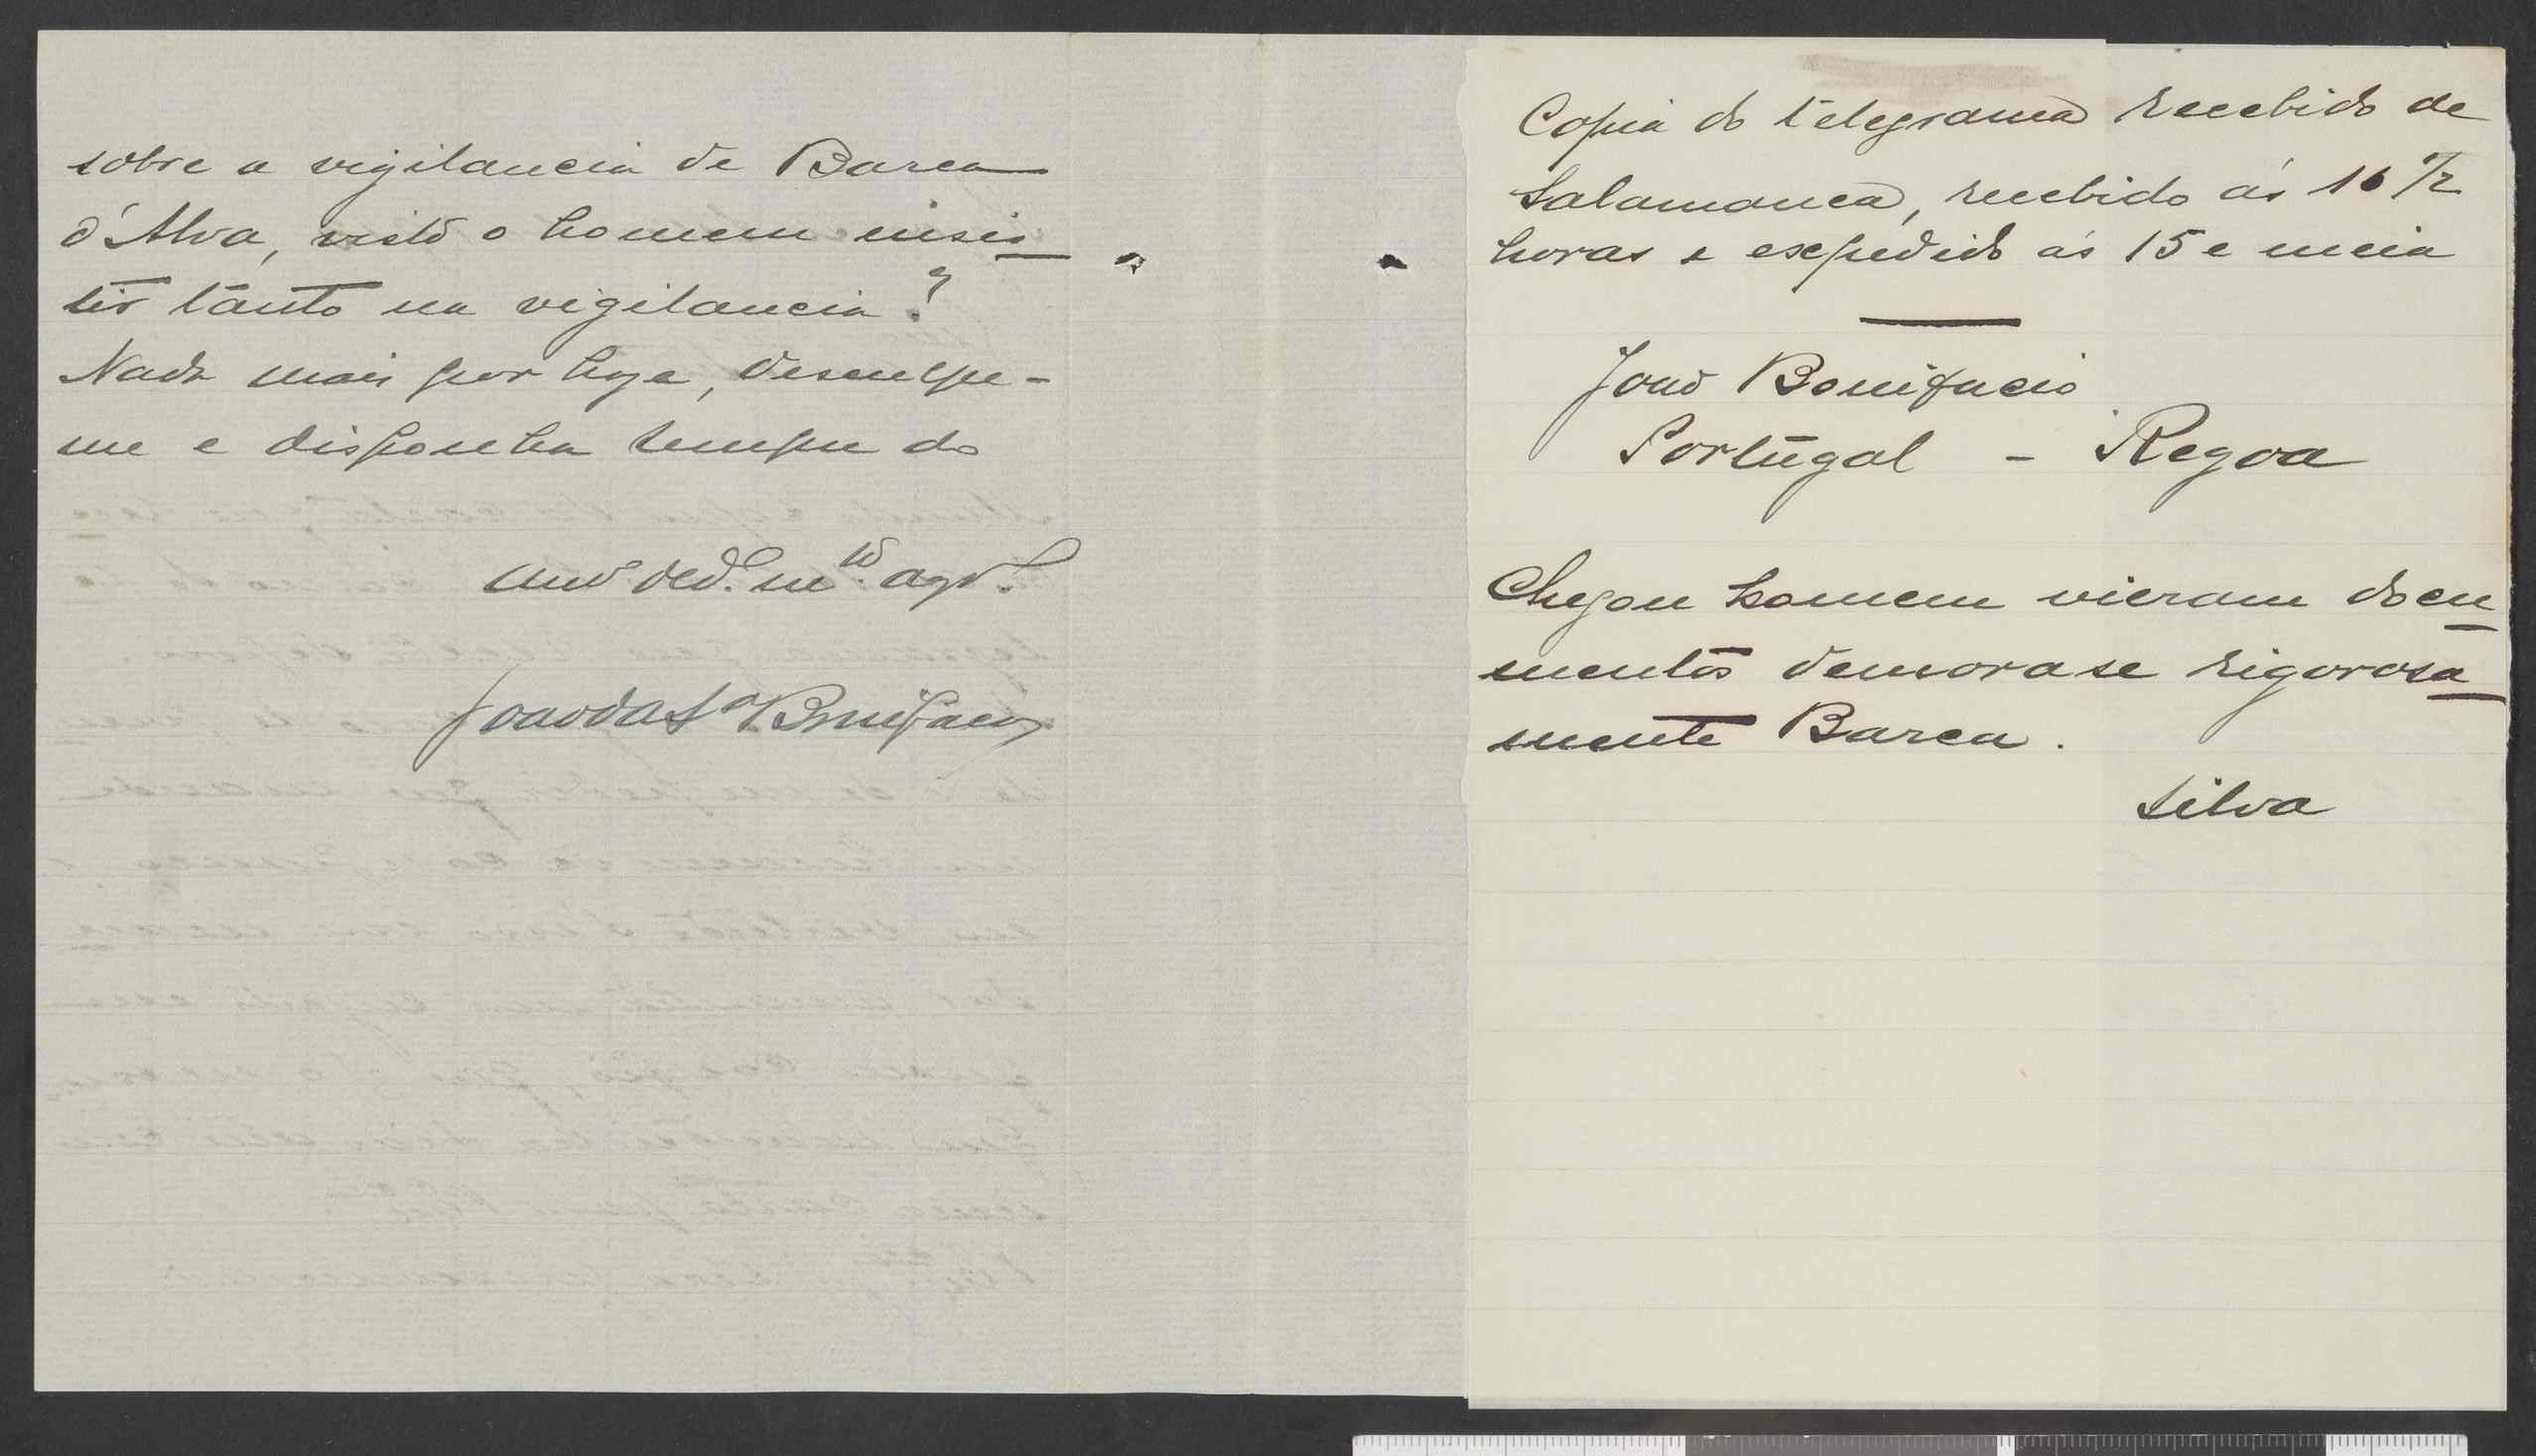 sobre a vigilancia de Barca
d'Alva, visto o homem insis
tir tanto na vigilancia?
Nada mais por hoje, desculpe-
me e disponha sempre do
Amº ded. mto. agrd.
João da Sª Bonifacio
Copia do telegrama recebido de
Salamanca, recebido ás 16 1/2
horas e expedido ás 15 e meia
João Bonifacio
Portugal - Regoa
Chegou homem vieram docu
mentos demorase rigorosa
mente Barca.
Silva